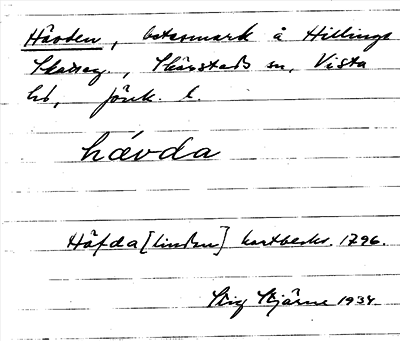 Hävden, betesmark å Hillings
Skatteg., Skärstads sn, Vista
hd, Jönk. l.
hävda
Häfda [linden] kartbeskr. 1796.
Stig Stjärne 1934